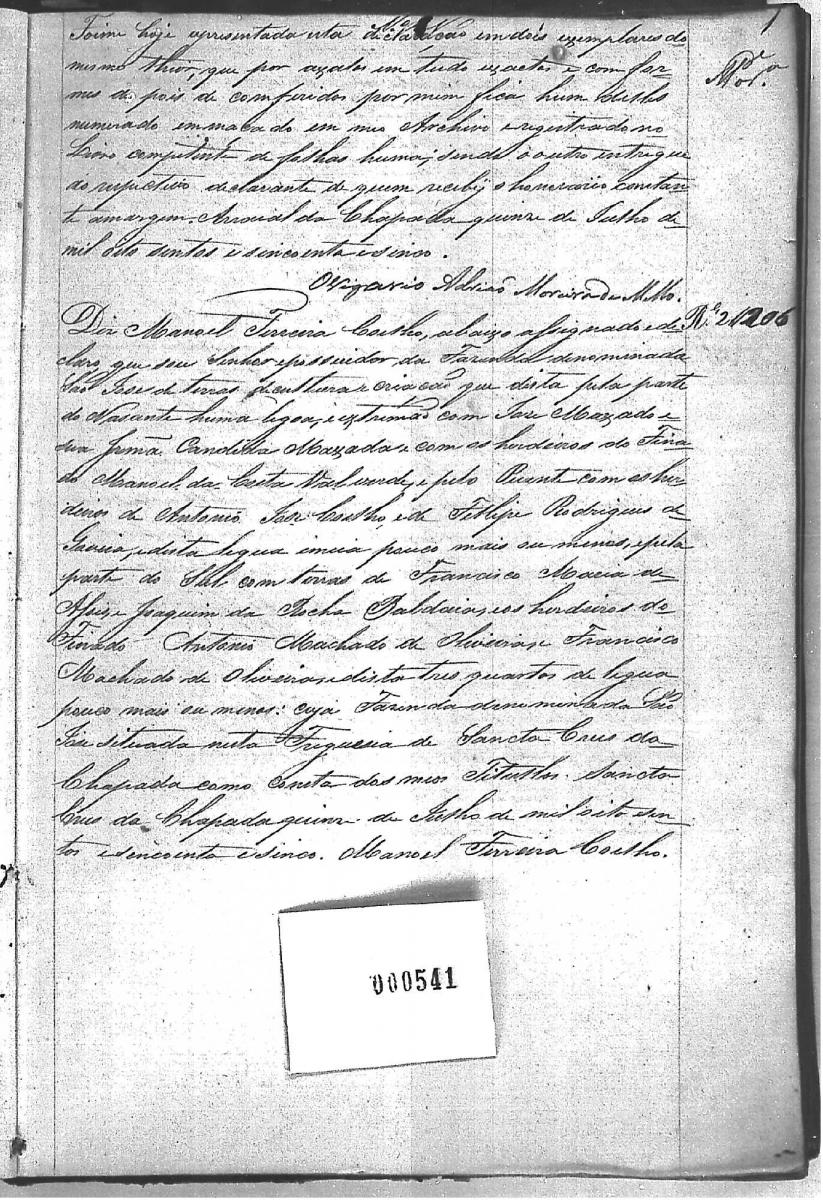 1
Morª
Foime hoje apresentada esta declaração em dois exemplares do
mesmo thior, que por axalos em tudo exactos e com for-
mes de pois de comferidos por mim fica hum destes
numerado em macado em meo Archivo e registrado no
Livro competente de folhas huma; sendo o outro intregue
ao respectivo declarante de quem recebij o honorario constan-
te amargem. Arraial da Chapada quinze de Julho de
mil oito sentos e sincoenta e sinco.
O Vigario Adrião Moreira de
Nº 2 1206
Diz Manoel Ferreira Coelho, abaixo assignado e de-
claro, que sou Senhor e possuidor da Fazenda denominada
São Jose de terras de cultura e criacão que dista pela parte
do Nascente huma legoa, e extremão com Joze Maxado e
sua Irmã Candida Maxada e com os herdeiros do Fina-
do Manoel da Costa Val verde, e pelo Puente com os her-
deiros de Antonio Joze Coelho e de Fellipe Rodrigues de
e dista legua e meia pouco mais ou menos, e pela
parte do Sul com terras de Francisco Maria de
Joaquim da Rocha e os herdeiros do
Finado Antonio Machado de Oliveira, e Francisco
Machado de Oliveira, e dista tres quartos de legua
pouco mais ou menos: cuja Fazenda denominada São
Joze situada nesta Freguesia de Sancta Crus da
Chapada como consta dos meos Titullos. Sancta
Crus da Chapada quinze de Julho de mil oito sen-
tos e sincoenta e sinco. Manoel Ferreira Coelho.
000541